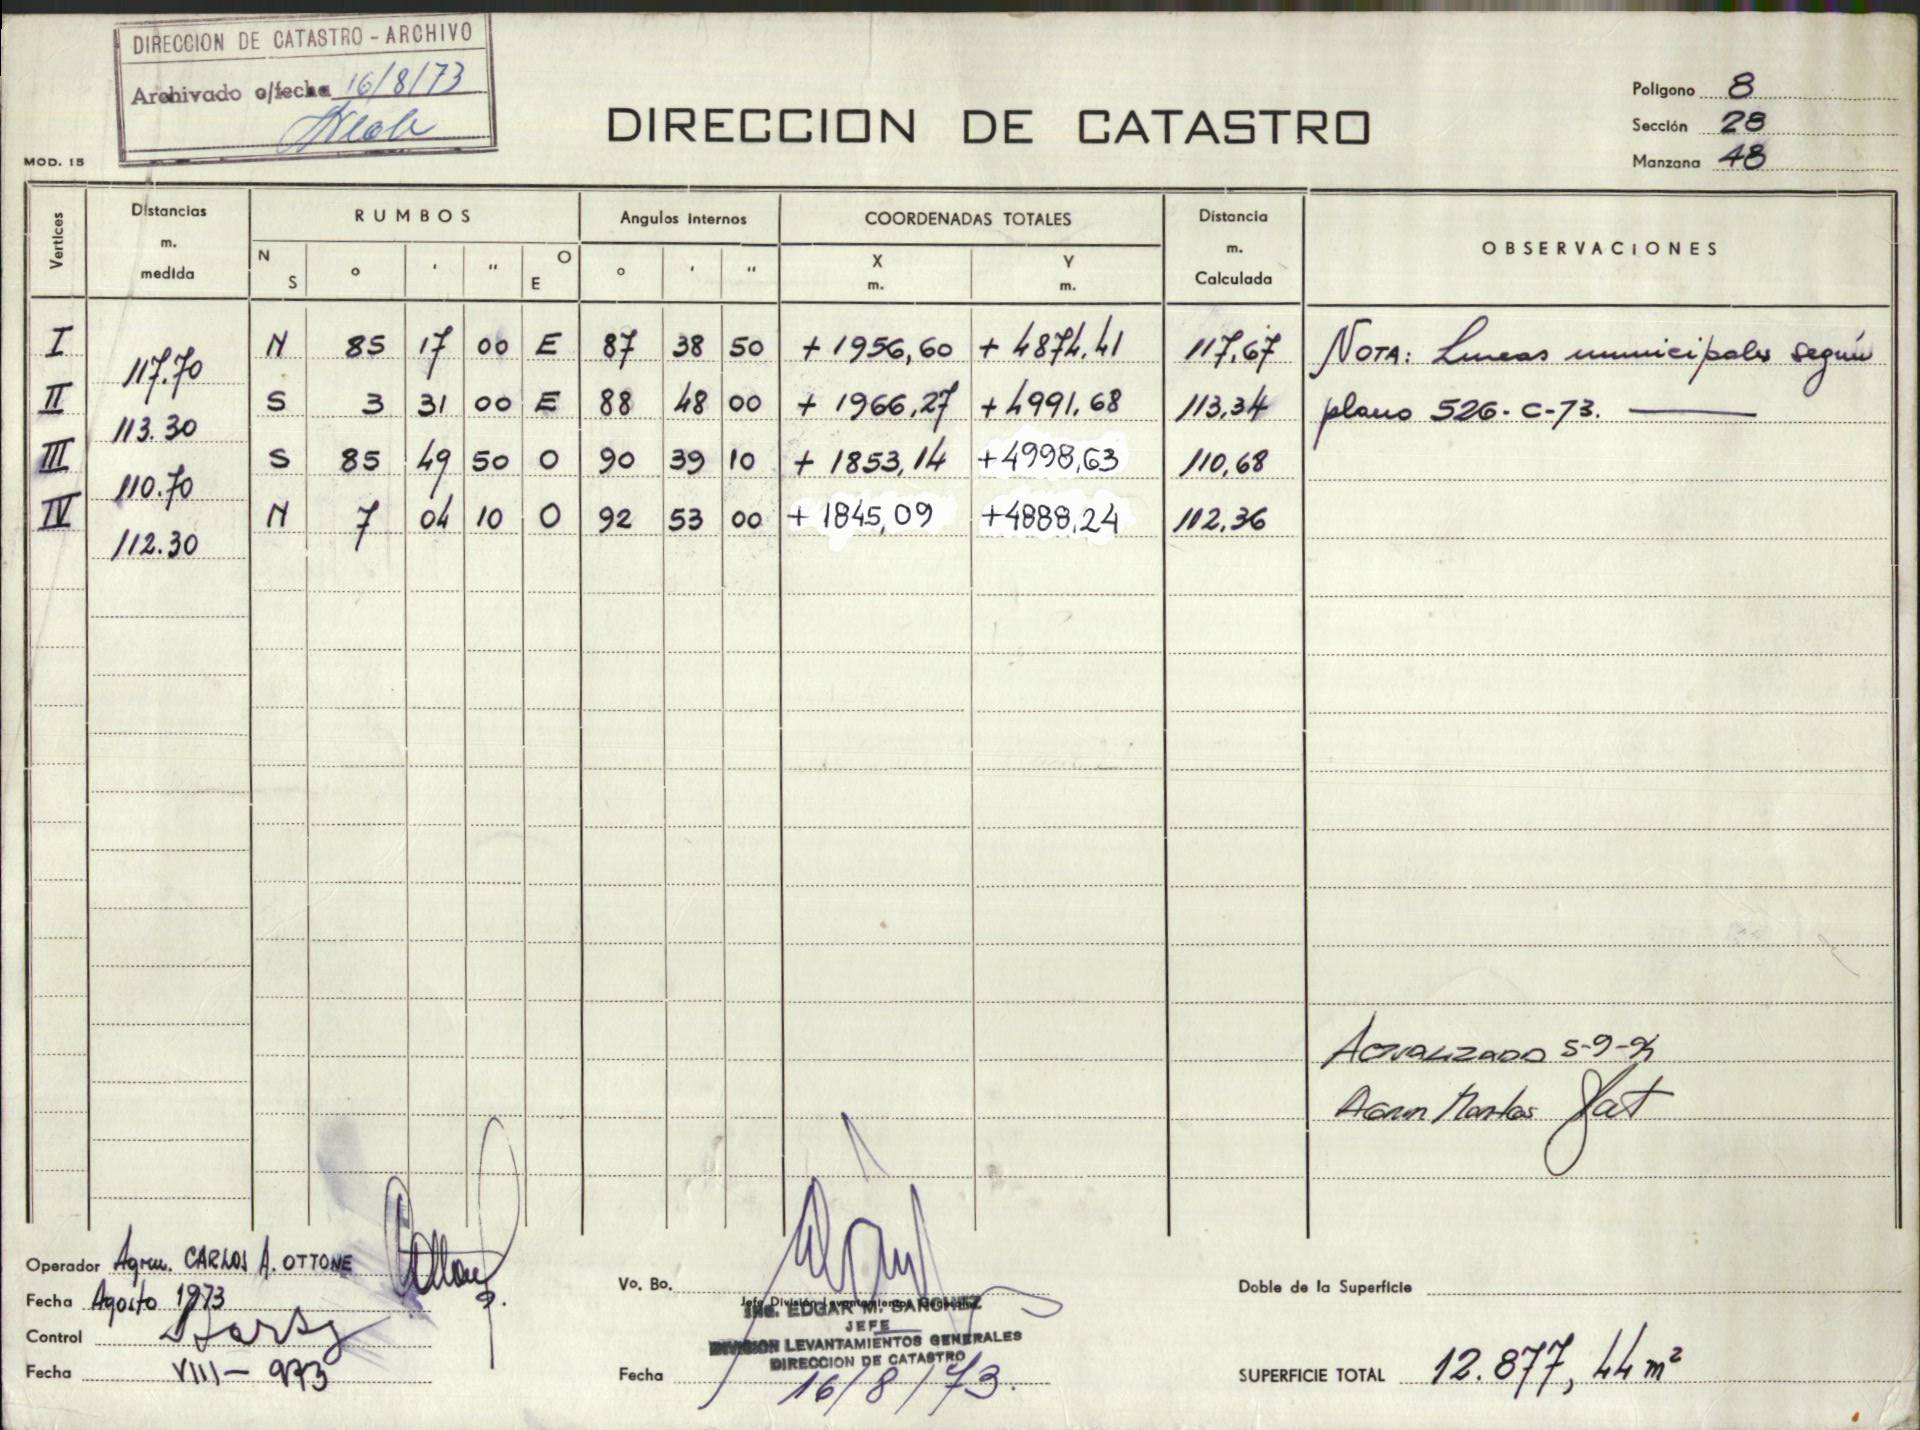 DIRECCION DE CATASTRO - ARCHIVO
Archivado c/fecha 16/8/73
MOD. 15
DIRECCION DE CATASTRO
Polígono 8
Sección 28
Manzana 48
Vertices
Distancias m. medida
RUMBOS
Angulos internos
COORDENADAS TOTALES
Distancia m. Calculada
OBSERVACIONES
N S ° ' " O E ° ' " X m. Y m.
I N 85 17 00 E 87 38 50 + 1956,60 + 4874,41 117,67 NOTA: Lineas municipales según
117.70
II S 3 31 00 E 88 48 00 + 1966,27 +4991,68 113,34 plano 526-C-73.
113.30
III S 85 49 50 O 90 39 10 + 1853,14 +4998,63 110,68
110.70
IV N 7 04 10 O 92 53 00 + 1845,09 +4888,24 112,36
112.30
ACTUALIZADO 5-9-
Operador Agrm. CARLOS A. OTTONE
Fecha Agosto 1973
Control
Fecha VIII - 973
Vo. Bo.
Jefe División Levantamientos Generales
Ing. EDGAR M. SANCHEZ
JEFE
DIVISION LEVANTAMIENTOS GENERALES
DIRECCION DE CATASTRO
Fecha 16/8/73.
Doble de la Superficie
SUPERFICIE TOTAL 12.877,44 m²